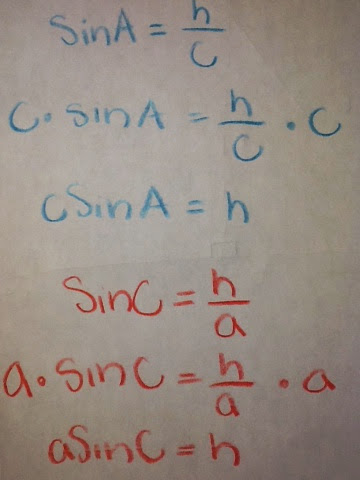 sinA = h/c
c · sinA = h/c · c
csinA = h
sinC = h/a
a · sinC = h/a · a
asinC = h